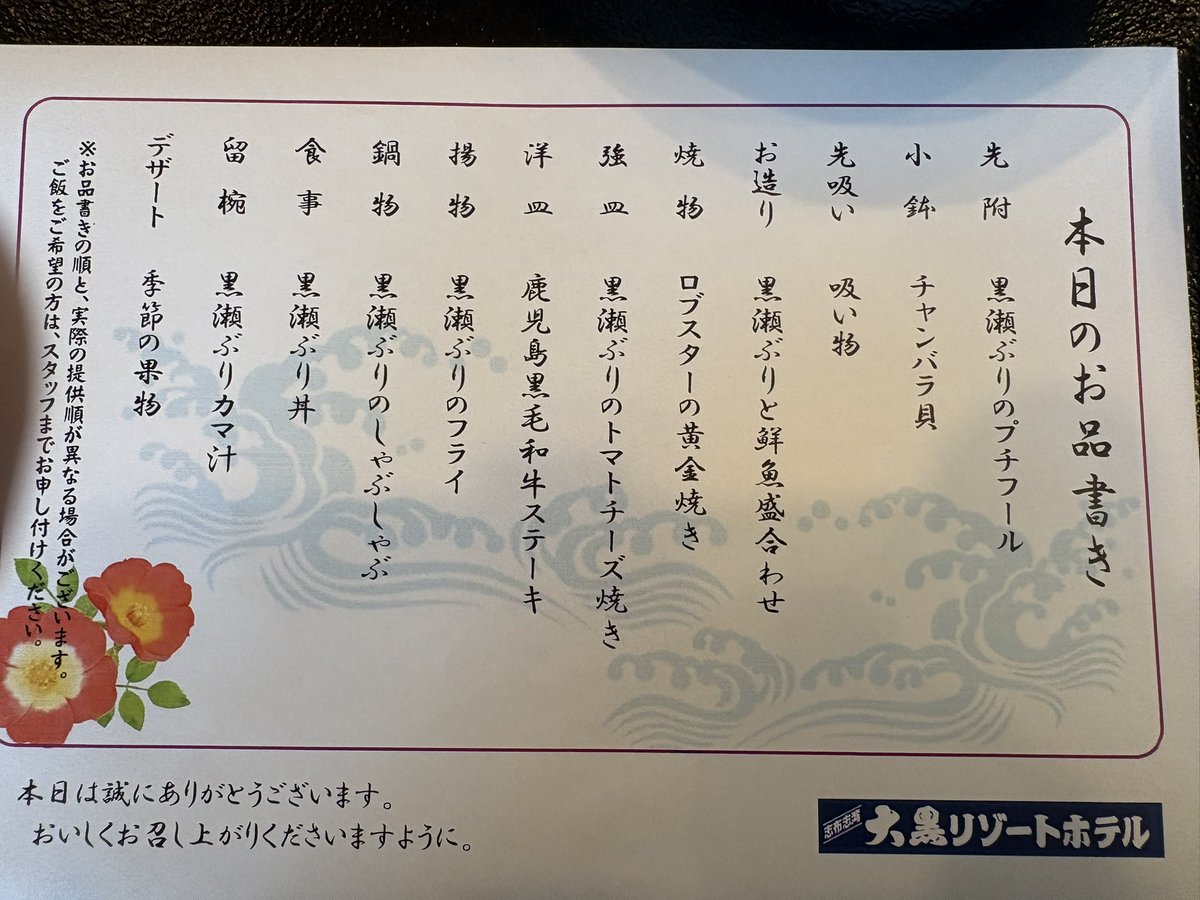 本日のお品書き
先附 黒瀬ぶりのプチフール
小鉢 チャンバラ貝
先吸い 吸い物
お造り 黒瀬ぶりと鮮魚盛合わせ
焼物 ロブスターの黄金焼き
強皿 黒瀬ぶりのトマトチーズ焼き
洋皿 鹿児島黒毛和牛ステーキ
揚物 黒瀬ぶりのフライ
鍋物 黒瀬ぶりのしゃぶしゃぶ
食事 黒瀬ぶり丼
留椀 黒瀬ぶりカマ汁
デザート 季節の果物
※お品書きの順と、実際の提供順が異なる場合がございます。
ご飯をご希望の方は、スタッフまでお申し付けください。
本日は誠にありがとうございます。
おいしくお召し上がりくださいますように。
志布志湾 大黒リゾートホテル